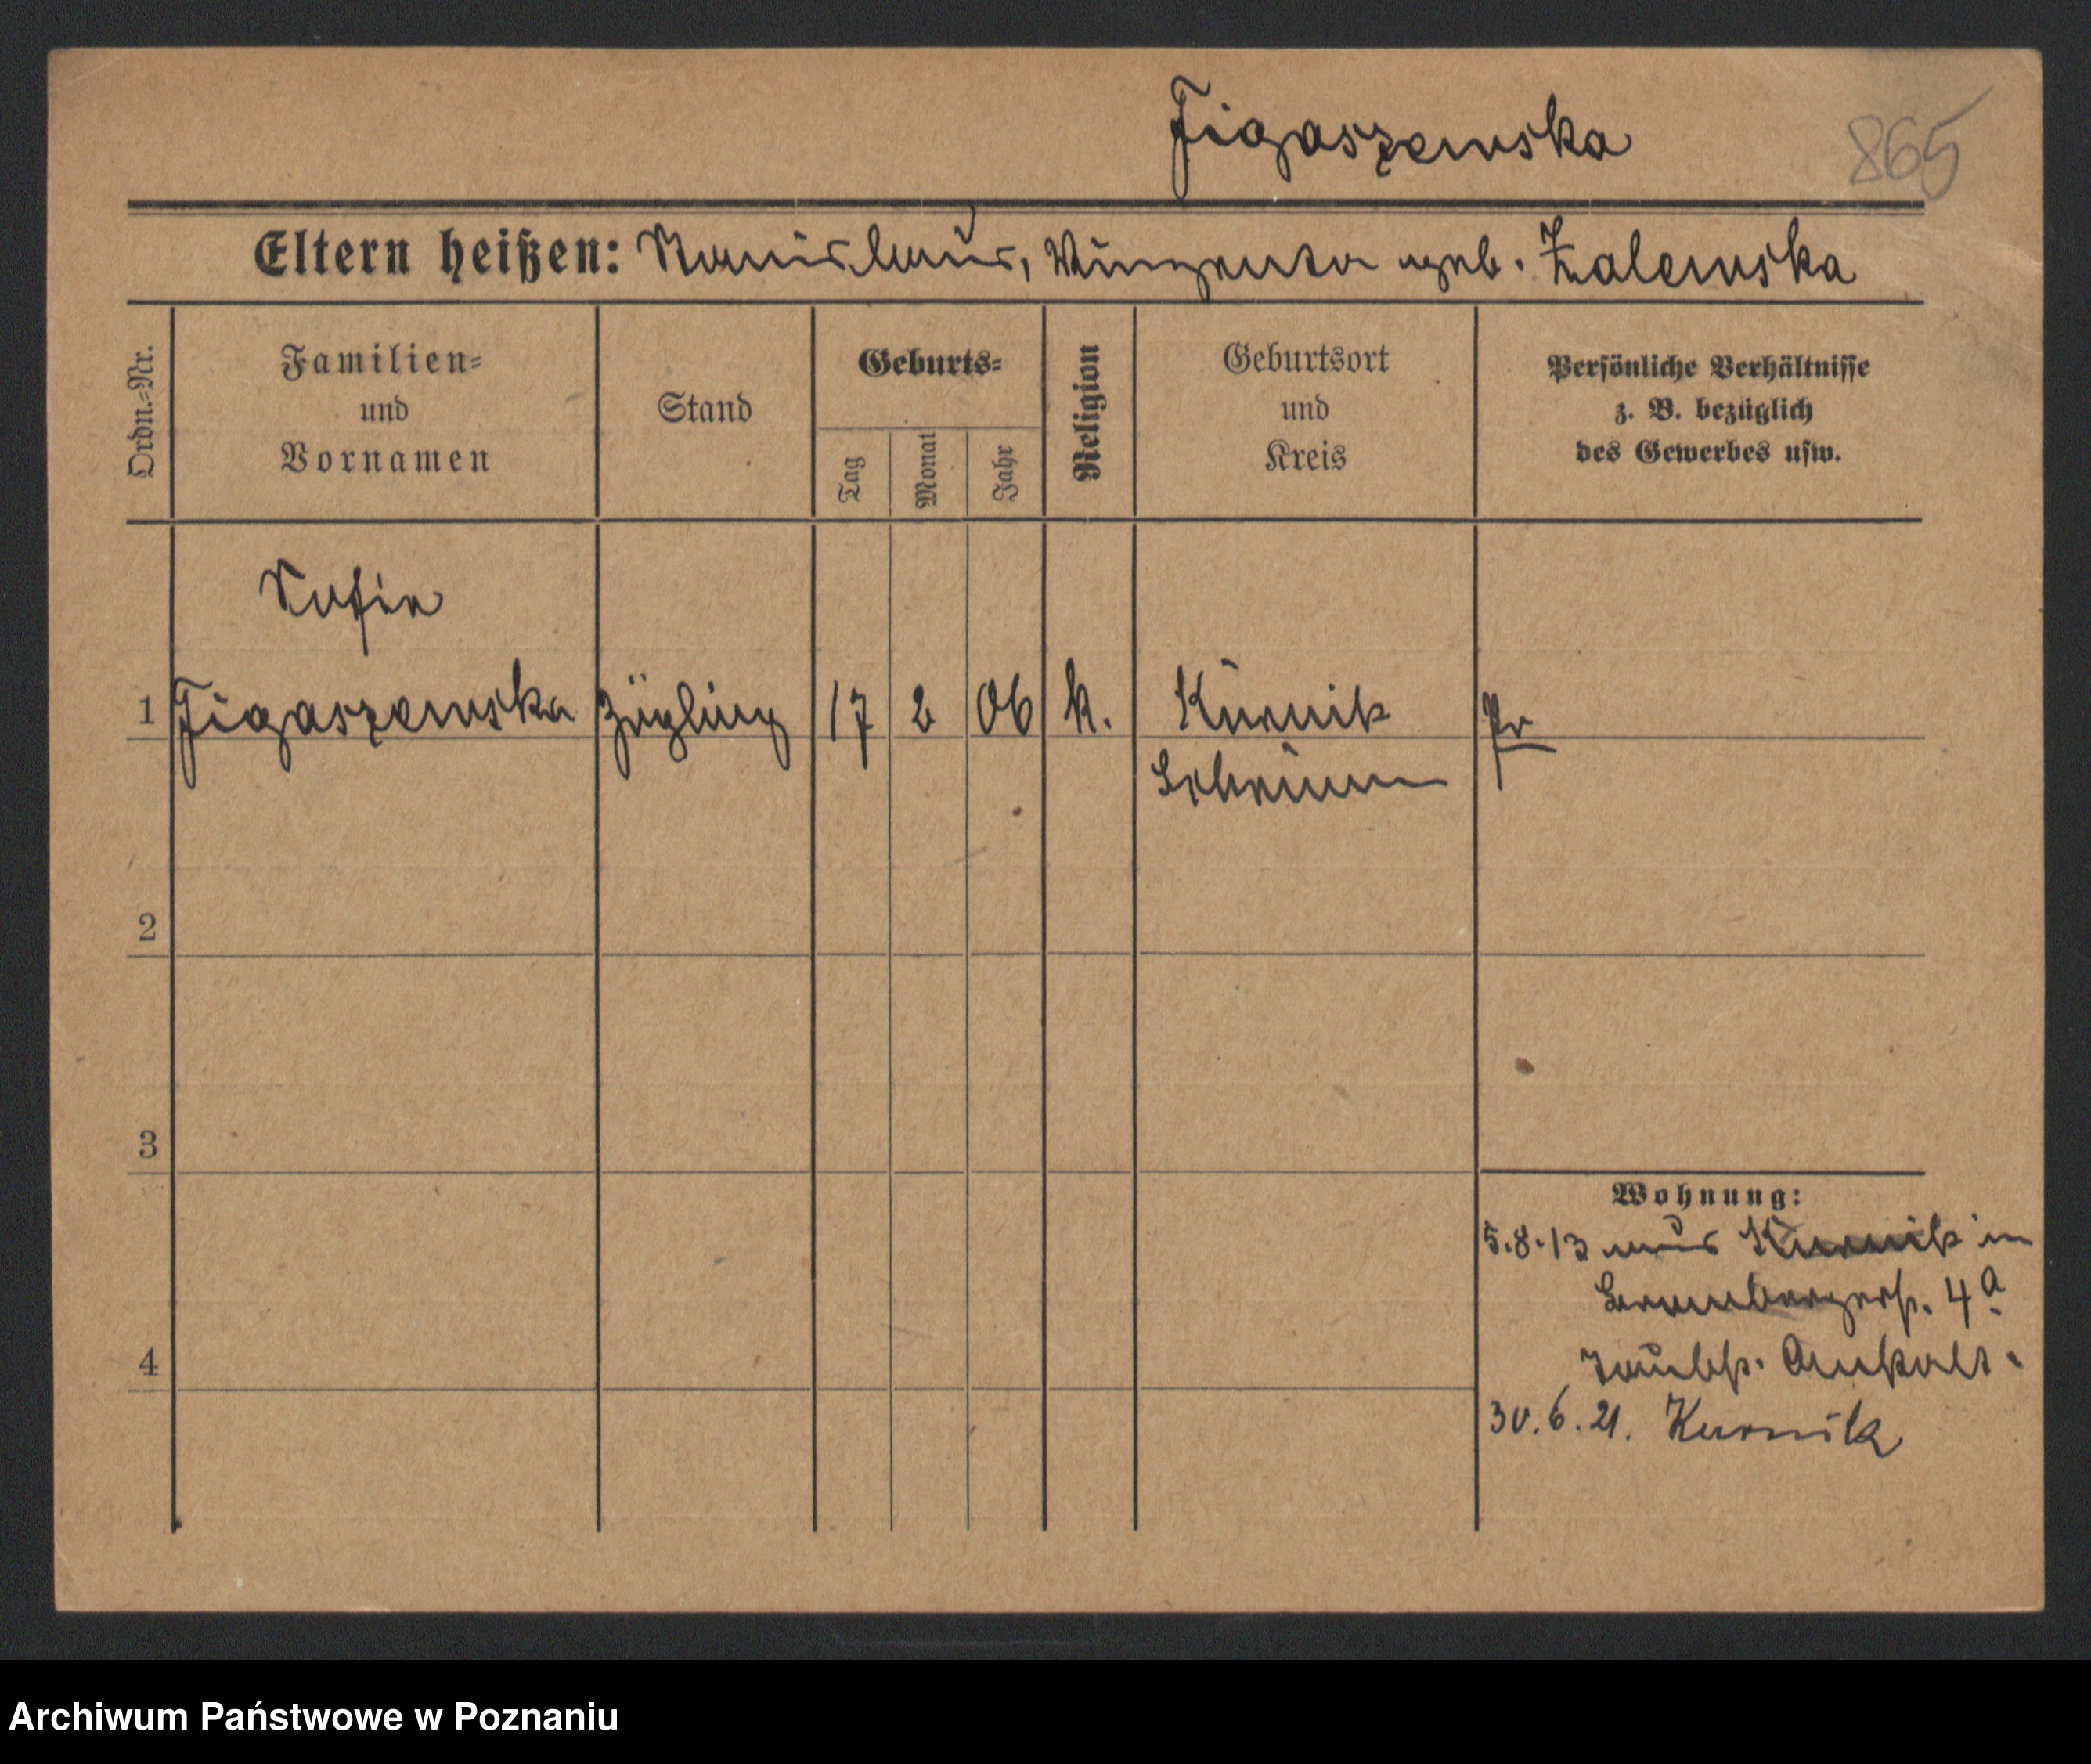 Figaszewska
865
Eltern heißen: Stanislaus, Winzenta geb. Zalewska
Ordn.-Nr.
Familien-
und
Vornamen
Stand
Geburts-
Tag
Monat
Jahr
Religion
Geburtsort
und
Kreis
Persönliche Verhältnisse
z. B. bezüglich
des Gewerbes usw.
Sofia
1 Figaszewska Zögling 17 2 06 k. Kurnik Pr
Schrimm
2
3
4
Wohnung:
5.8.13 aus Kurnik in
Brombergerst. 4a
Taubst. Anstalt.
30.6.21. Kurnik
Archiwum Państwowe w Poznaniu